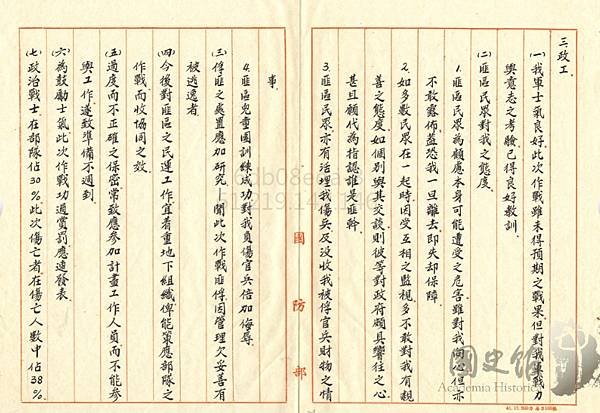 三、政工
(一)我軍士氣良好此次作戰雖未得預期之戰果但對我軍戰力
與意志之考驗已得良好教訓
(二)匪區民眾對我之態度
1.匪區民眾為顧慮本身可能遭受之危害雖對我向心但亦
不敢露佈蓋恐我一旦離去即失却保障
2.如多數民眾在一起時因受互相之監視多不敢對我有親
善之態度如個別與其交談則彼等對政府頗具嚮往之心
甚且願代為指認誰是匪幹
3.匪區民眾亦有活埋我傷兵及沒收我被俘官兵財物之情
事
4.匪區兒童團訓練成功對我負傷官兵倍加侮辱
(三)俘匪之處置應加研究—聞此次作戰匪俘因管理欠妥善有
被逃逸者
(四)今後對匪區之民運工作宜着重地下組織俾能策應部隊之
作戰而收協同之效
(五)過度而不正確之保密常致應參加計畫工作人員而不能參
與工作遂致準備不週到
(六)為鼓勵士氣此次作戰功過賞罰應速發表
(七)政治戰士在部隊佔30%此次傷亡者在傷亡人數中佔38%
國防部
國史館
Academia Historica